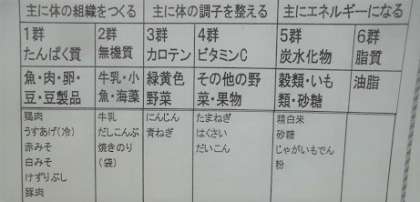 主に体の組織をつくる
主に体の調子を整える
主にエネルギーになる
1群
たんぱく質
2群
無機質
3群
カロテン
4群
ビタミンC
5群
炭水化物
6群
脂質
魚・肉・卵・
豆・豆製品
牛乳・小
魚・海藻
緑黄色
野菜
その他の野
菜・果物
穀類・いも
類・砂糖
油脂
鶏肉
うすあげ(冷)
赤みそ
白みそ
けずりぶし
豚肉
牛乳
だしこんぶ
焼きのり
(袋)
にんじん
青ねぎ
たまねぎ
はくさい
だいこん
精白米
砂糖
じゃがいもでん
粉